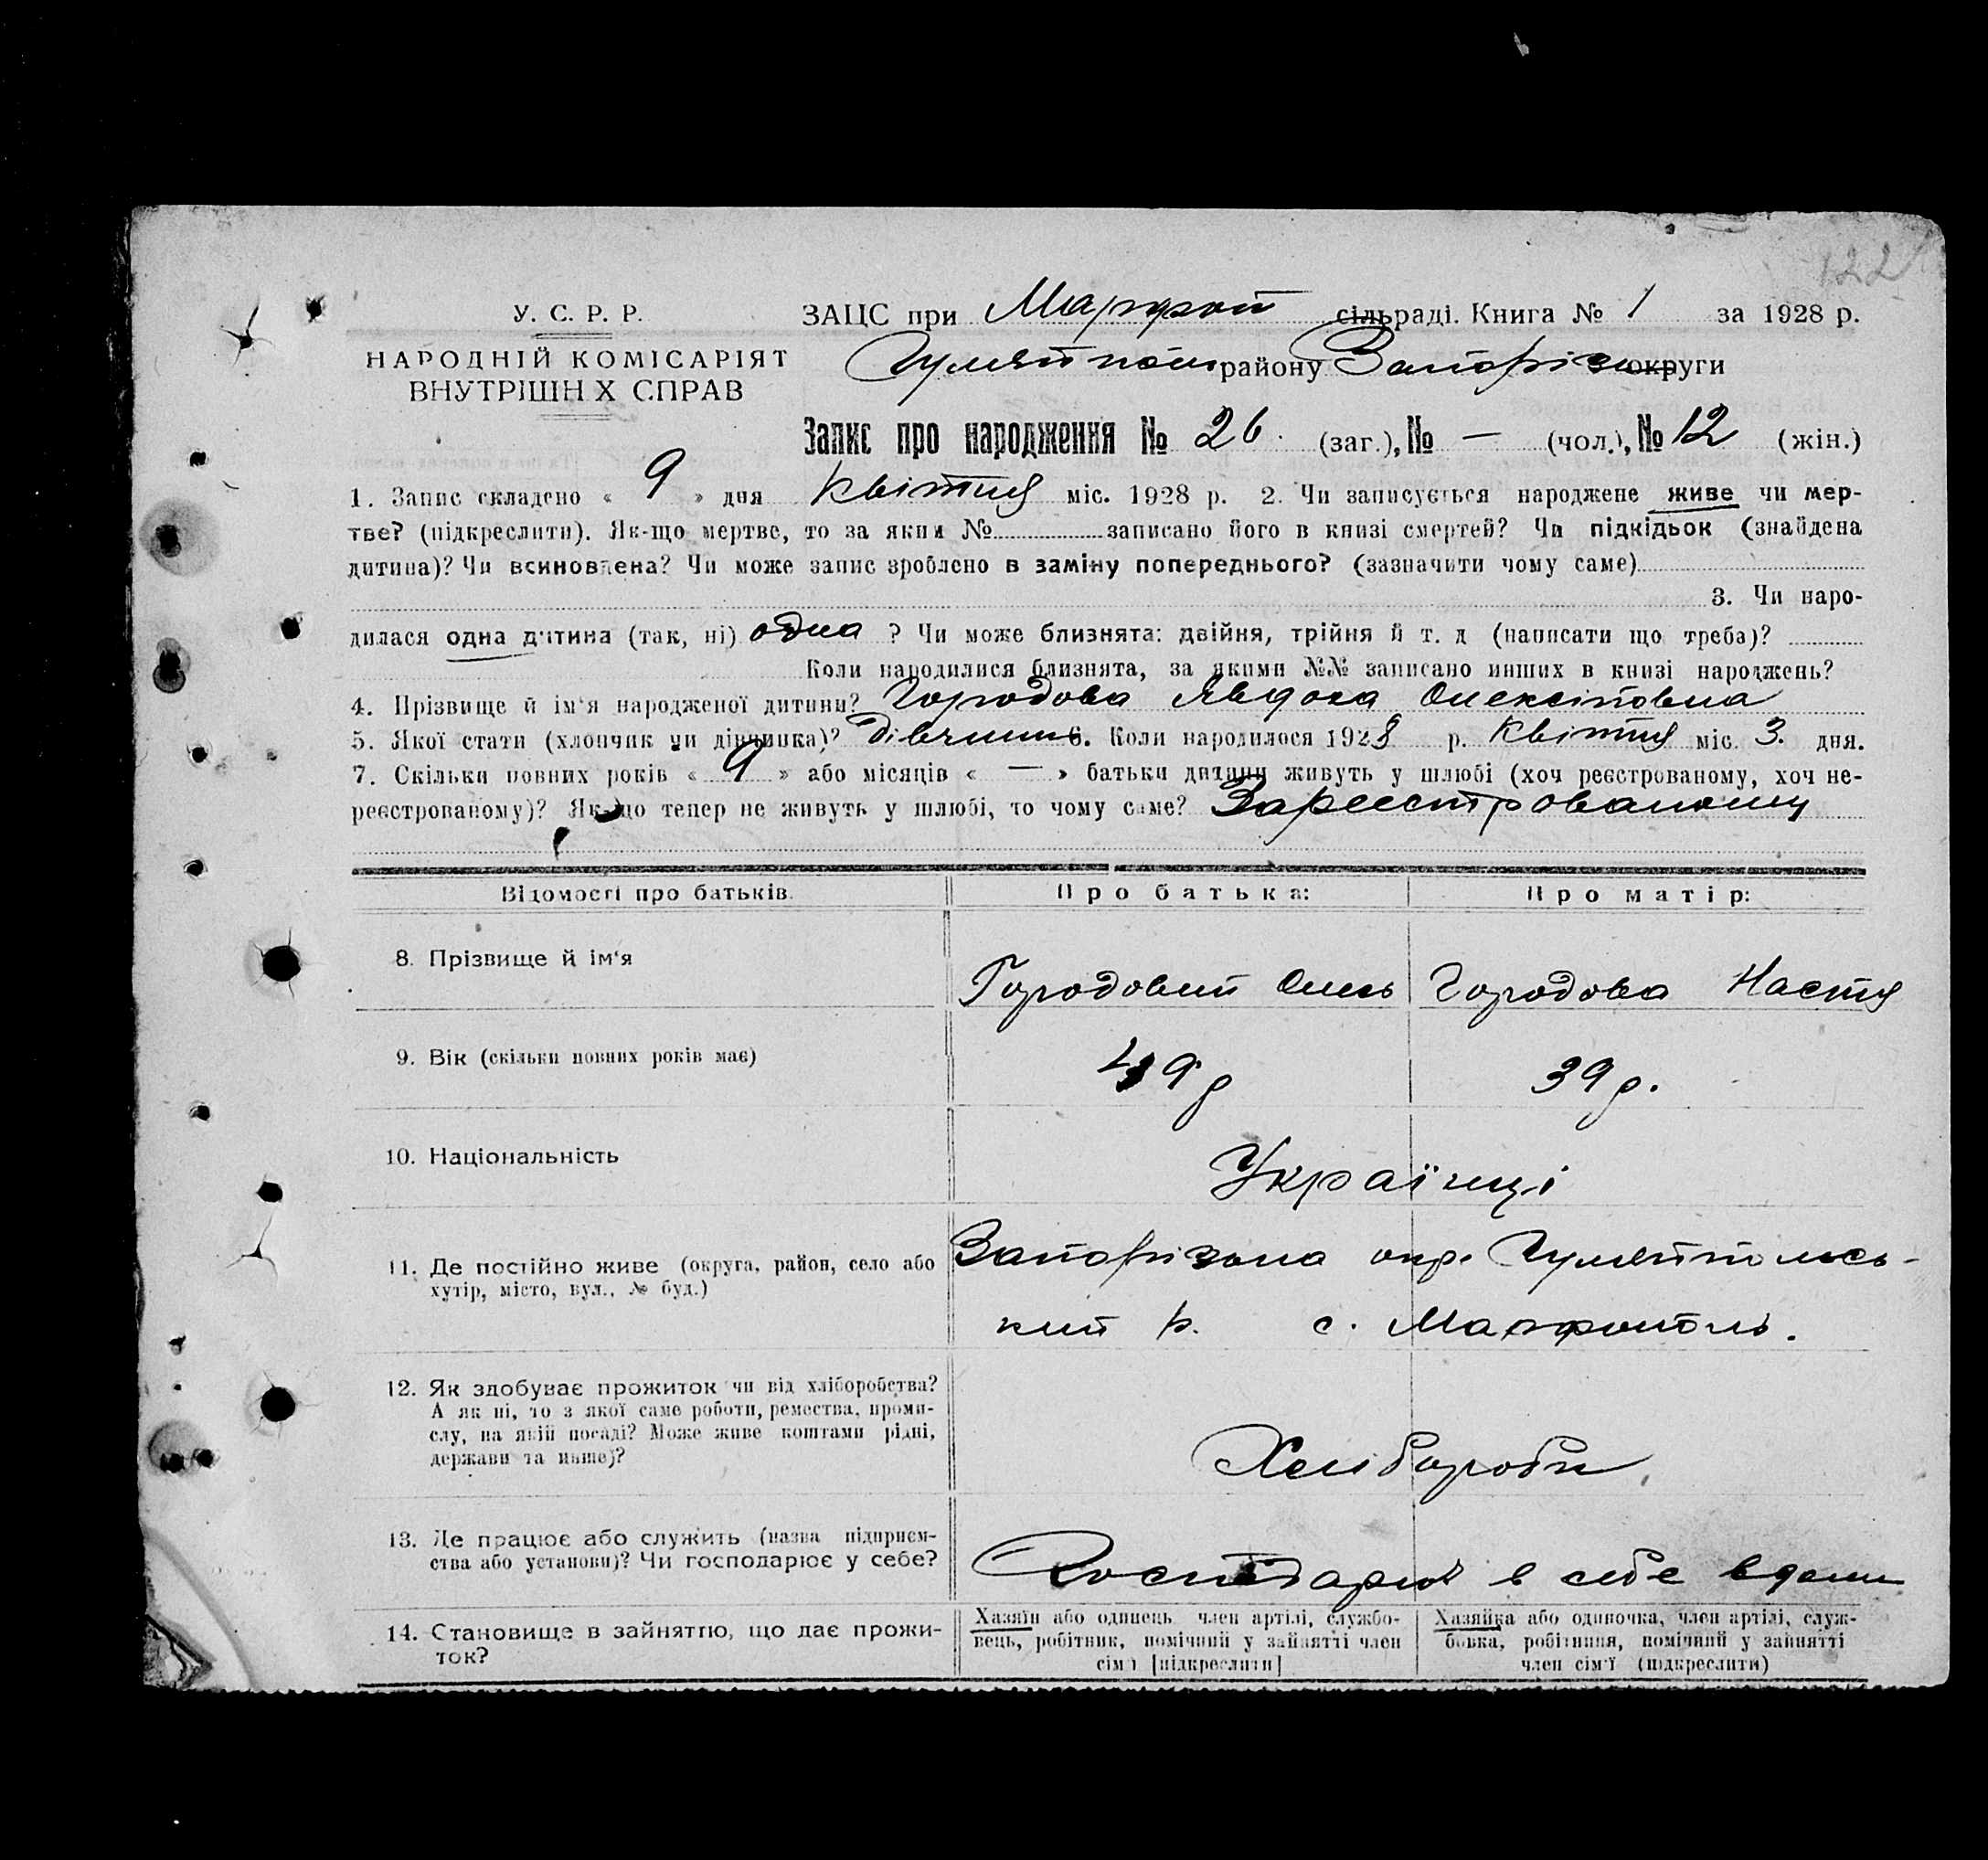 122
У. С. Р. Р.
НАРОДНІЙ КОМІСАРІЯТ
ВНУТРІШН Х СПРАВ
ЗАЦС при Марфоп сільраді. Книга № 1 за 1928 р.
Гуляйпол району Запоріз округи
Запис про народження № 26. (заг.), № — (чол.), № 12 (жін.)
1. Запис складено « 9 » дня Квітня міс. 1928 р. 2. Чи записується народжене живе чи мер-
тве? (підкреслити). Як-що мертве, то за яким № записано його в книзі смертей? Чи підкідьок (знайдена
дитина)? Чи всиновлена? Чи може запис зроблено в заміну попереднього? (зазначити чому саме)
3. Чи наро-
дилася одна дитина (так, ні) одна ? Чи може близнята: двійня, трійня й т. д (написати що треба)?
Коли народилися близнята, за якими №№ записано инших в книзі народжень?
4. Прізвище й ім'я народженої дитини? Городова Явдоха Олексіївна
5. Якої стати (хлопчик чи дівчинка)? Дівчина 6. Коли народилося 1928 р. Квітня міс. 3. дня.
7. Скільки повних років « 9 » або місяців « — » батьки дитини живуть у шлюбі (хоч реєстрованому, хоч не-
реєстрованому)? Як-що тепер не живуть у шлюбі, то чому саме? Зареєстрованому
Відомості про батьків.
Про батька:
Про матір:
8. Прізвище й ім'я
Городовий Олесь
Городова Настя
9. Вік (скільки повних років має)
49 р
39 р.
10. Національність
Українці
11. Де постійно живе (округа, район, село або
хутір, місто, вул., № буд.)
Запорізька окр. Гуляйпольсь-
кий р. с. Марфополь.
12. Як здобуває прожиток чи від хліборобства?
А як ні, то з якої саме роботи, ремества, проми-
слу, на якій посаді? Може живе коштами рідні,
держави та инше)?
Хлібороби
13. Де працює або служить (назва підприєм-
ства або установи)? Чи господарює у себе?
Господарює в себе вдома
14. Становище в зайняттю, що дає прожи-
ток?
Хазяїн або одинець, член артілі, службо-
вець, робітник, помічний у зайнятті член
сім'ї [підкреслити]
Хазяйка або одиночка, член артілі, служ-
бовка, робітниця, помічний у зайнятті
член сім'ї (підкреслити)